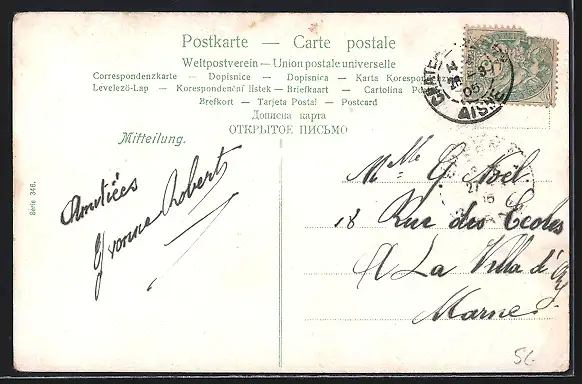 Postkarte — Carte postale
Weltpostverein — Union postale universelle
Correspondenzkarte — Dopisnice — Dopisnica — Karta Korespondenc
Levelező-Lap — Korespondenční listek — Briefkaart — Cartolina Po
Brefkort — Tarjeta Postal — Postcard
Дописна карта
ОТКРЫТОЕ ПИСЬМО
Mitteilung.
Serie 346.
Amitiées
Yvonne Robert
AISNE
Melle G. Noël
18 Rue des Ecoles
A La Villa d'Ay
Marne